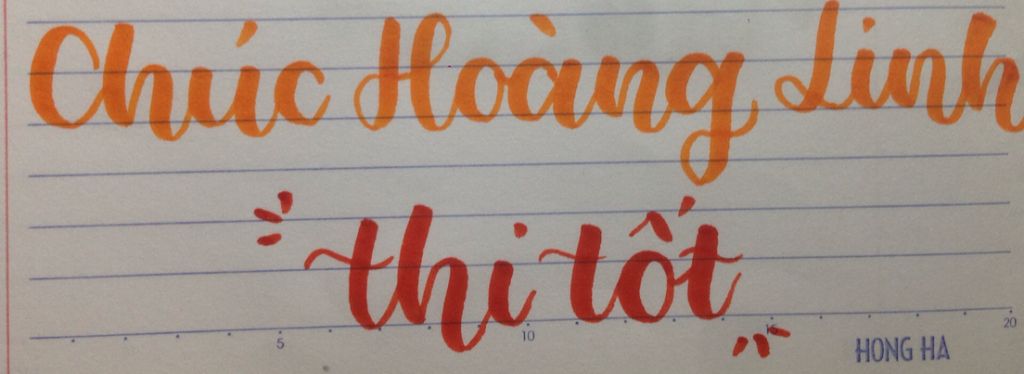 Chúc Hoàng Linh
thi tốt
5 10 15 20
HONG HA